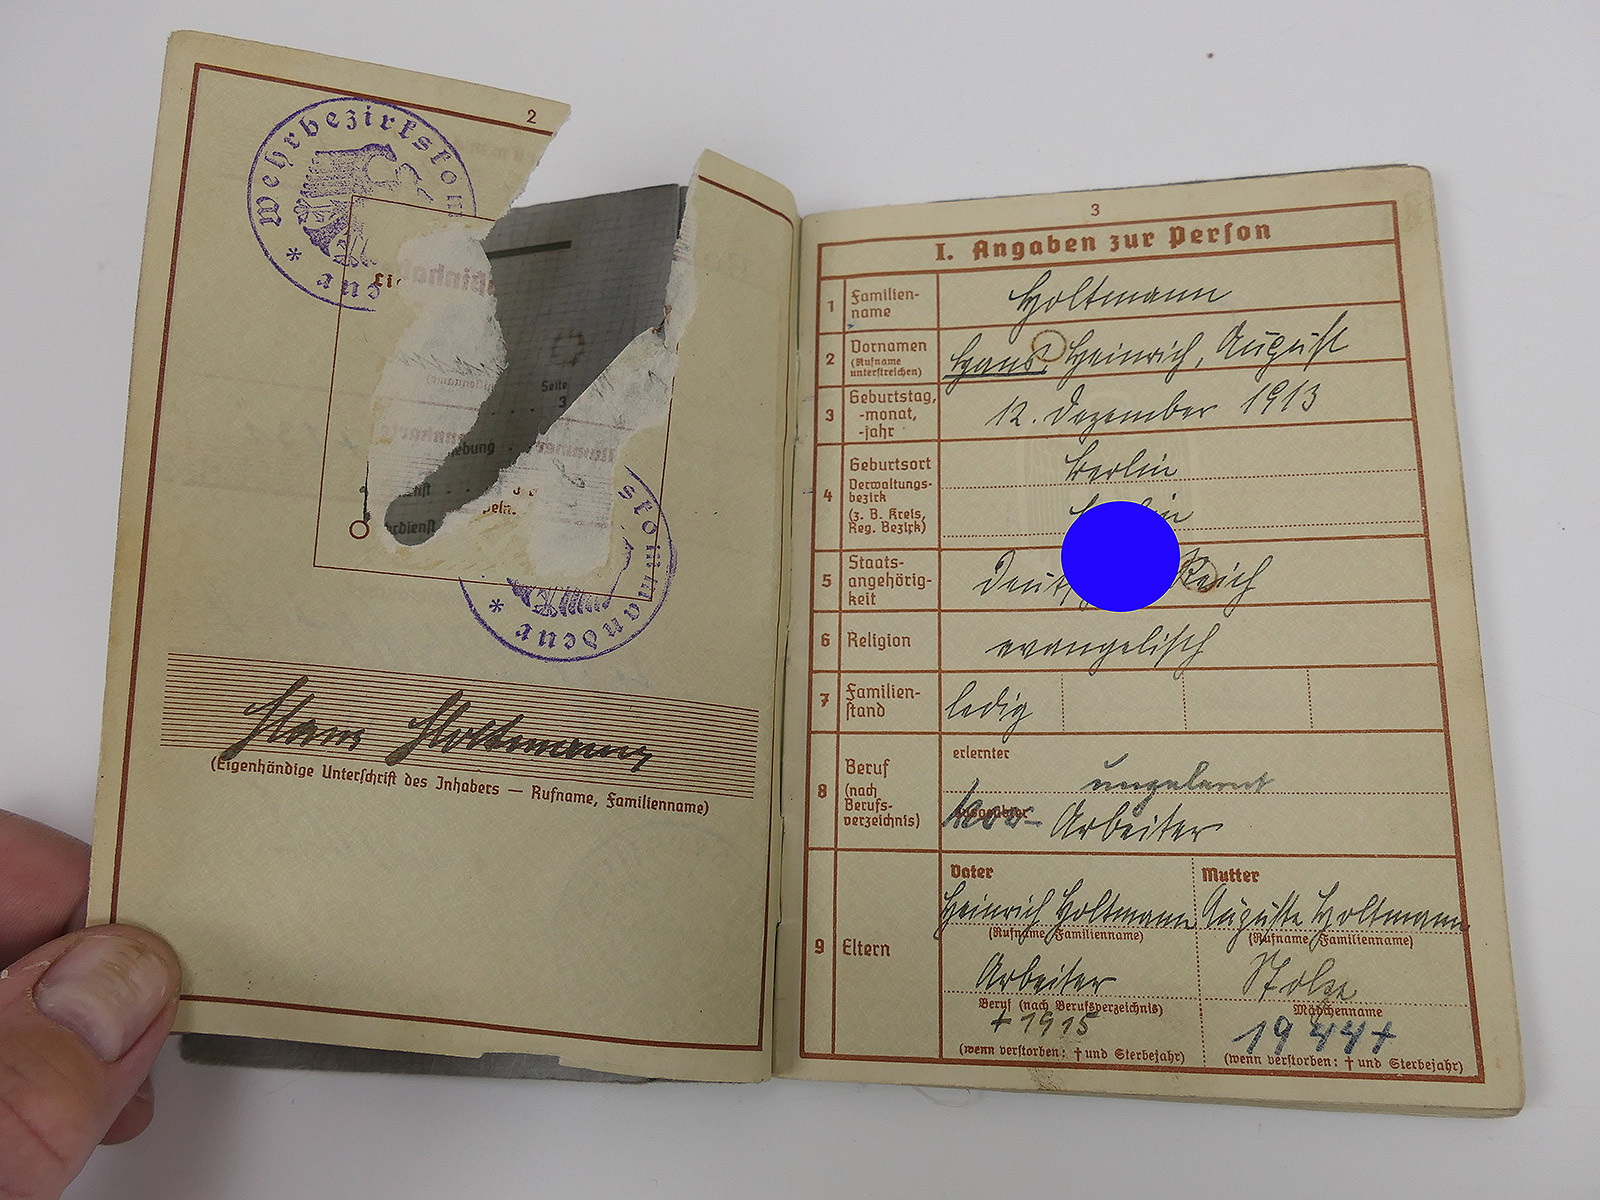 2
Wehrbezirkskom
eur
Seite
3
ebung
rdienst
kommandeur
Hans Holtmann
(Eigenhändige Unterschrift des Inhabers — Rufname, Familienname)
3
I. Angaben zur Person
1 Familien-
name
Holtmann
2 Vornamen
(Rufname
unterstreichen)
Hans, Heinrich, August
3 Geburtstag,
-monat,
-jahr
12. Dezember 1913
4 Geburtsort
Verwaltungs-
bezirk
(z. B. Kreis,
Reg. Bezirk)
Berlin
5 Staats-
angehörig-
keit
Reich
6 Religion
evangelisch
7 Familien-
stand
ledig
8 Beruf
(nach
Berufs-
verzeichnis)
erlernter
ungelernt
Arbeiter
9 Eltern
Vater
Heinrich Holtmann
(Rufname, Familienname)
Arbeiter
Beruf (nach Berufsverzeichnis)
+ 1915
(wenn verstorben: † und Sterbejahr)
Mutter
Auguste Holtmann
(Rufname, Familienname)
Mädchenname
1944 +
(wenn verstorben: † und Sterbejahr)